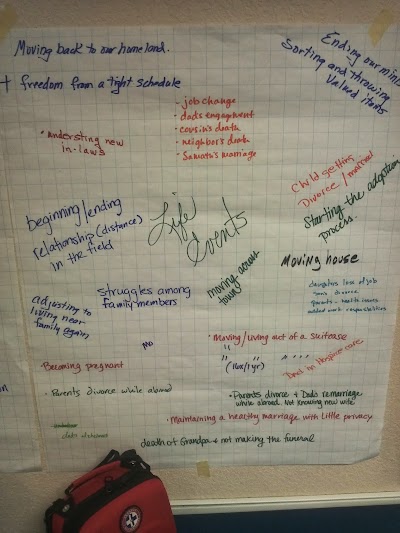 Moving back to our homeland.
Ending our
Sorting and throwing
Valued items
+ freedom from a tight schedule
- job change
- dads engagement
- cousin's death
- neighbor's death
- Samatu's marriage
• understing new
in-laws
Child getting
Divorce / married
Starting the adoption
process.
beginning/ending
relationship (distance)
in the field
Life
Events
Moving house
moving across
town
daughters loss of job
divorce
parents - health issues
added work responsibilities
struggles among
family members
adjusting to
living near
family again
• Moving/living out of a suitcase
" "
(16x/1yr)
Dad in Hospice care
Becoming pregnant
• Parents divorce while abroad
• Parents divorce & Dad's remarriage
while abroad. Not knowing new wife
• Maintaining a healthy marriage with little privacy
death of Grandpa & not making the funeral